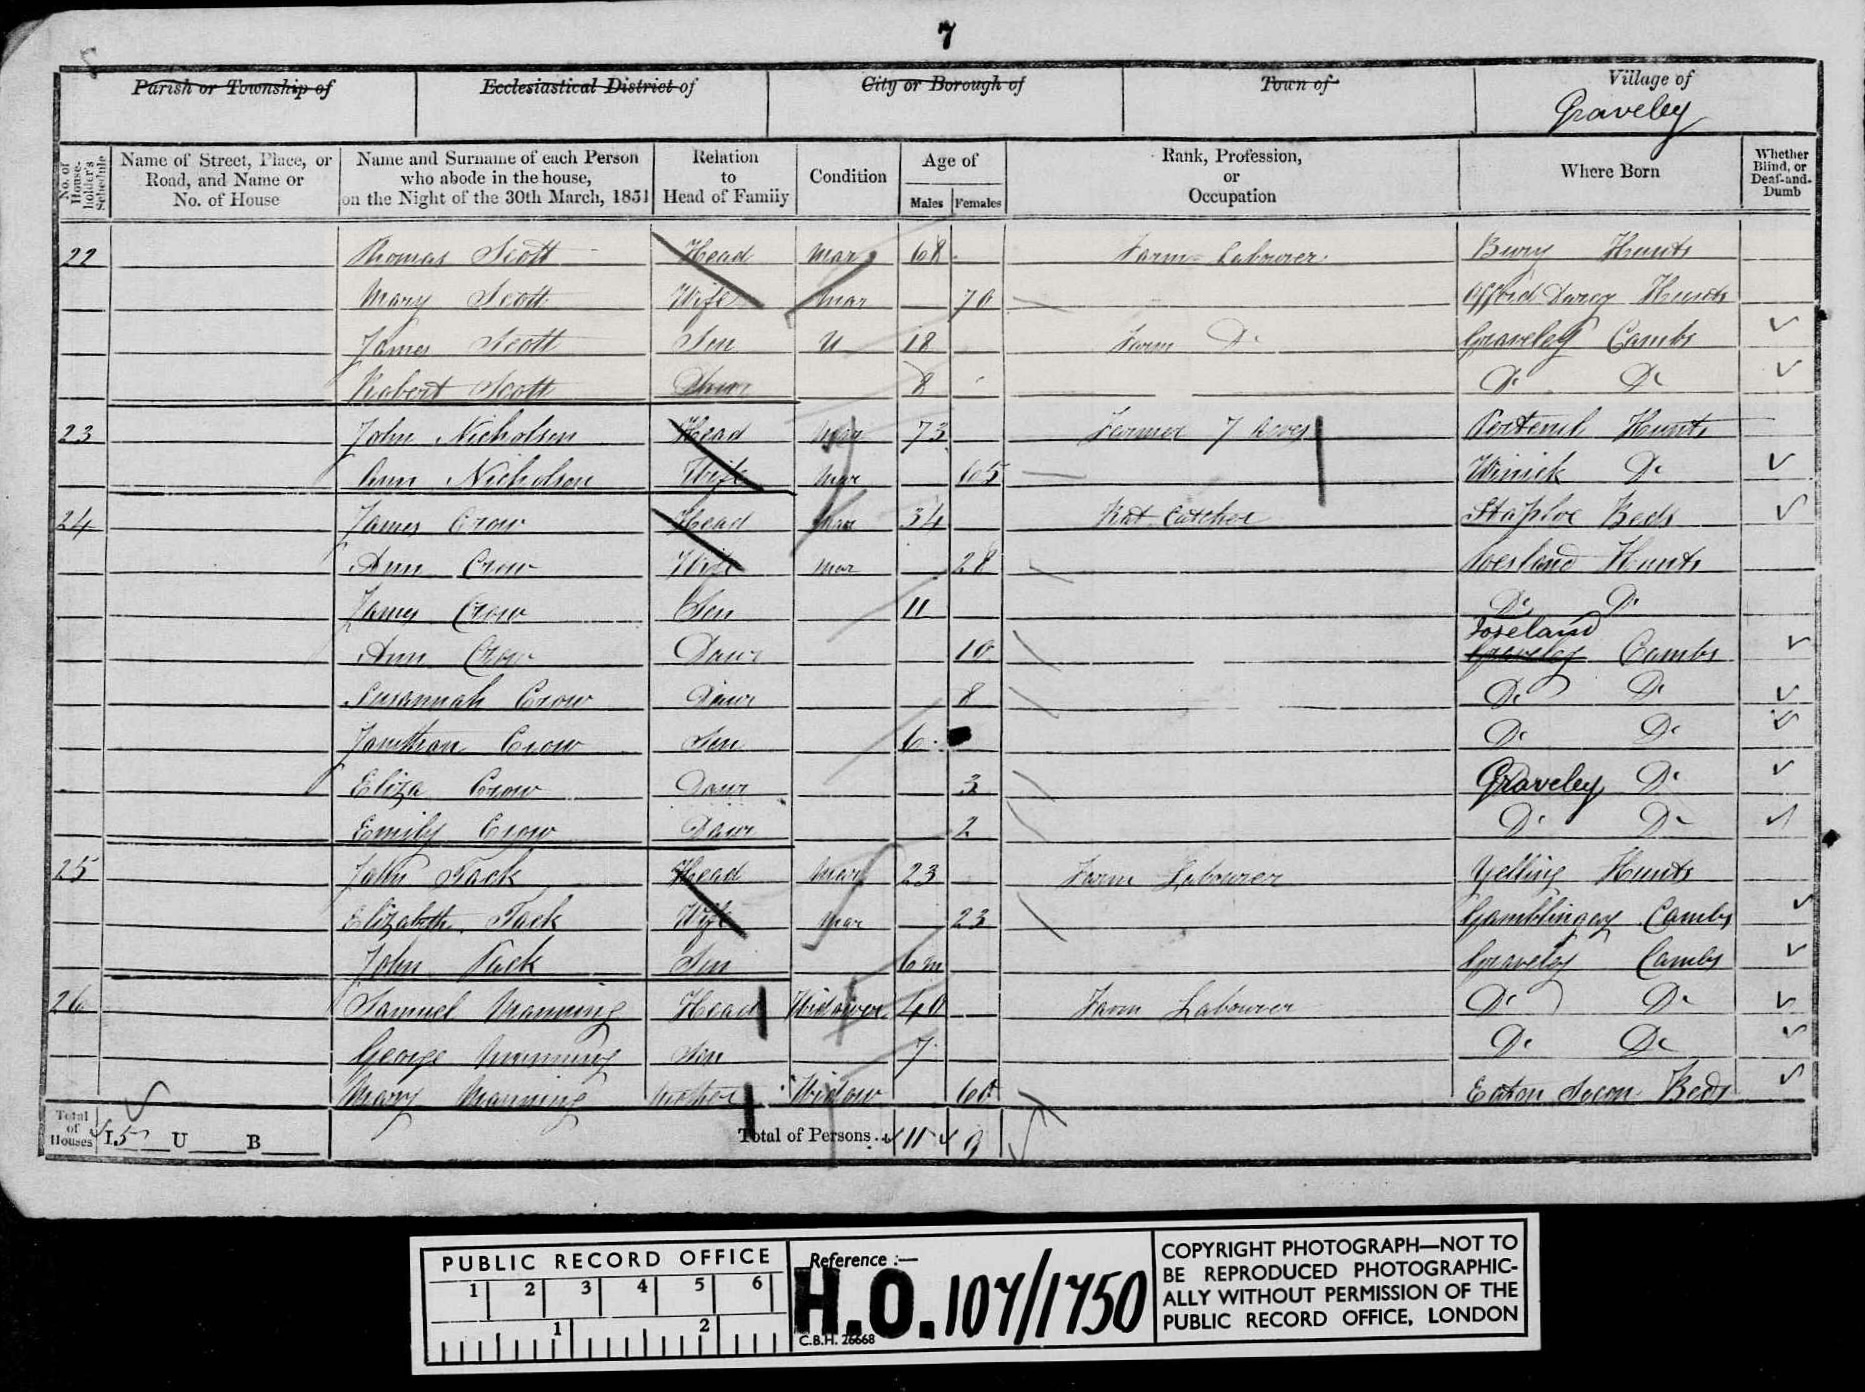 7
Parish or Township of Ecclesiastical District of City or Borough of Town of Village of
Graveley
No. of House-holder's Schedule Name of Street, Place, or Road, and Name or No. of House Name and Surname of each Person who abode in the house, on the Night of the 30th March, 1851 Relation to Head of Family Condition Age of Males Females Rank, Profession, or Occupation Where Born Whether Blind, or Deaf-and-Dumb
22 Thomas Scott Head Mar 68 Farm Labourer Bury Hunts
Mary Scott Wife Mar 70 Offord Darcy Hunts
James Scott Son U 18 Farm Do Graveley Cambs
Robert Scott 8 Do Do
23 John Nicholson Head Mar 73 Farmer 7 Acres Pertenil Hunts
Ann Nicholson Wife Mar 65 Winick Do
24 James Crow Head Mar 34 Rat Catcher Staploe Beds
Ann Crow Wife Mar 28 Hunts
James Crow Son 11 Do Do
Toseland
Ann Crow Daur 10 Graveley Cambs
Susannah Crow Daur 8 Do Do
Crow Son 6 Do Do
Eliza Crow Daur 3 Graveley Do
Emily Crow Daur 2 Do Do
25 John Tack Head Mar 23 Farm Labourer Yelling Hunts
Elizabeth Tack Wife Mar 23 Gamblingay Cambs
John Tack Son 6m Graveley Cambs
26 Samuel Manning Head Widower 40 Farm Labourer Do Do
George Manning Son 7 Do Do
Mary Manning Mother Widow 60 Eaton Socon Beds
Total of Houses I 5 U B Total of Persons 11 9
PUBLIC RECORD OFFICE
1 2 3 4 5 6
1 2
Reference :—
H.O. 107/1750
C.B.H. 26668
COPYRIGHT PHOTOGRAPH—NOT TO
BE REPRODUCED PHOTOGRAPHIC-
ALLY WITHOUT PERMISSION OF THE
PUBLIC RECORD OFFICE, LONDON